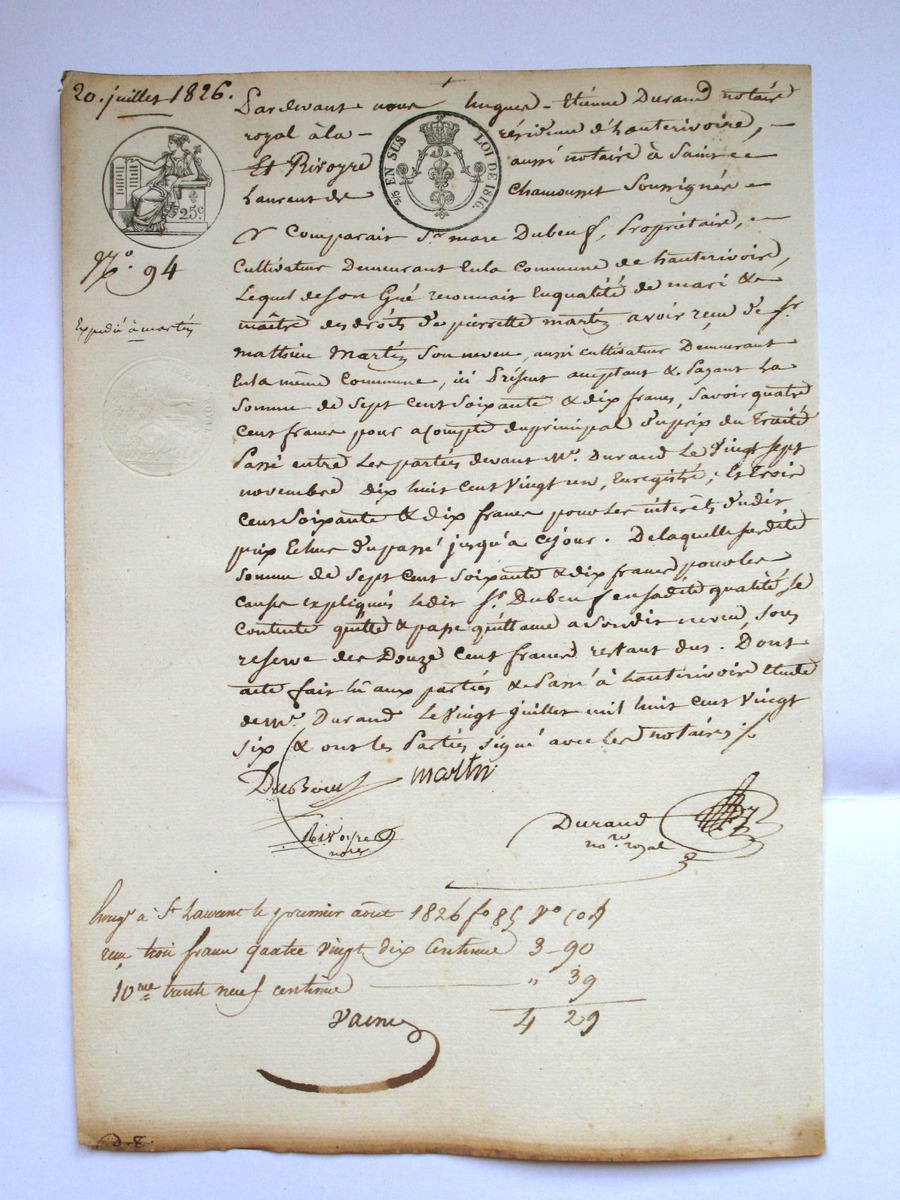 20. juillet 1826.
Pardevant nous hugues - Etienne Durand notaire
royal à la - résidence d'hauterivoire, -
Et Rivoyre aussi notaire à Saint -
Laurent de Chamousset Soussignés -
25 EN SUS LOI DE 1816.
25c
N.º 94
Expédié à martin
Comparait Sr. marc Dubeuf, Propriétaire, -
Cultivateur Demeurant En la Commune de hauterivoire,
Lequel de Son Gré reconnait En qualité de mari &
maître des droits de pierrette martin avoir reçu de Sr.
mathieu Martin Son neveu, aussi cultivateur Demeurant
En la même Commune, ici Présent acceptant & Payant La
Somme de Sept Cent Soixante & dix francs, Savoir quatre
Cent francs pour acompte du principal du prix du Traité
Passé entre Les parties devant Me. Durand Le Vingt Sept
novembre dix huit Cent Vingt un, Enregistré, Et Trois
Cent Soixante & dix francs pour Les intérêts dudit
prix Echus du passé jusqu'à Ce jour. De laquelle Susdite
Somme de Sept Cent Soixante & dix francs pour les
causes expliqués Ledit Sr. Dubeuf en sadite qualité Se
Contente quitte & passe quittance a Sondit neveu, Sous
reserve des Douze Cent francs restant dus. Dont
acte fait lû aux parties & Passé à hauterivoire Etude
de Me. Durand Le Vingt juillet mil huit Cent Vingt
Six & ont les Parties Signé avec les notaires
DuBoeuf martin
Rivoyre
nore
Durand
nore. royal
Enregé à St Laurent le premier août 1826 fo 85 Vo
reçu trois francs quatre vingt dix Centimes 3 - 90
10me trente neuf centimes " 39
4 29